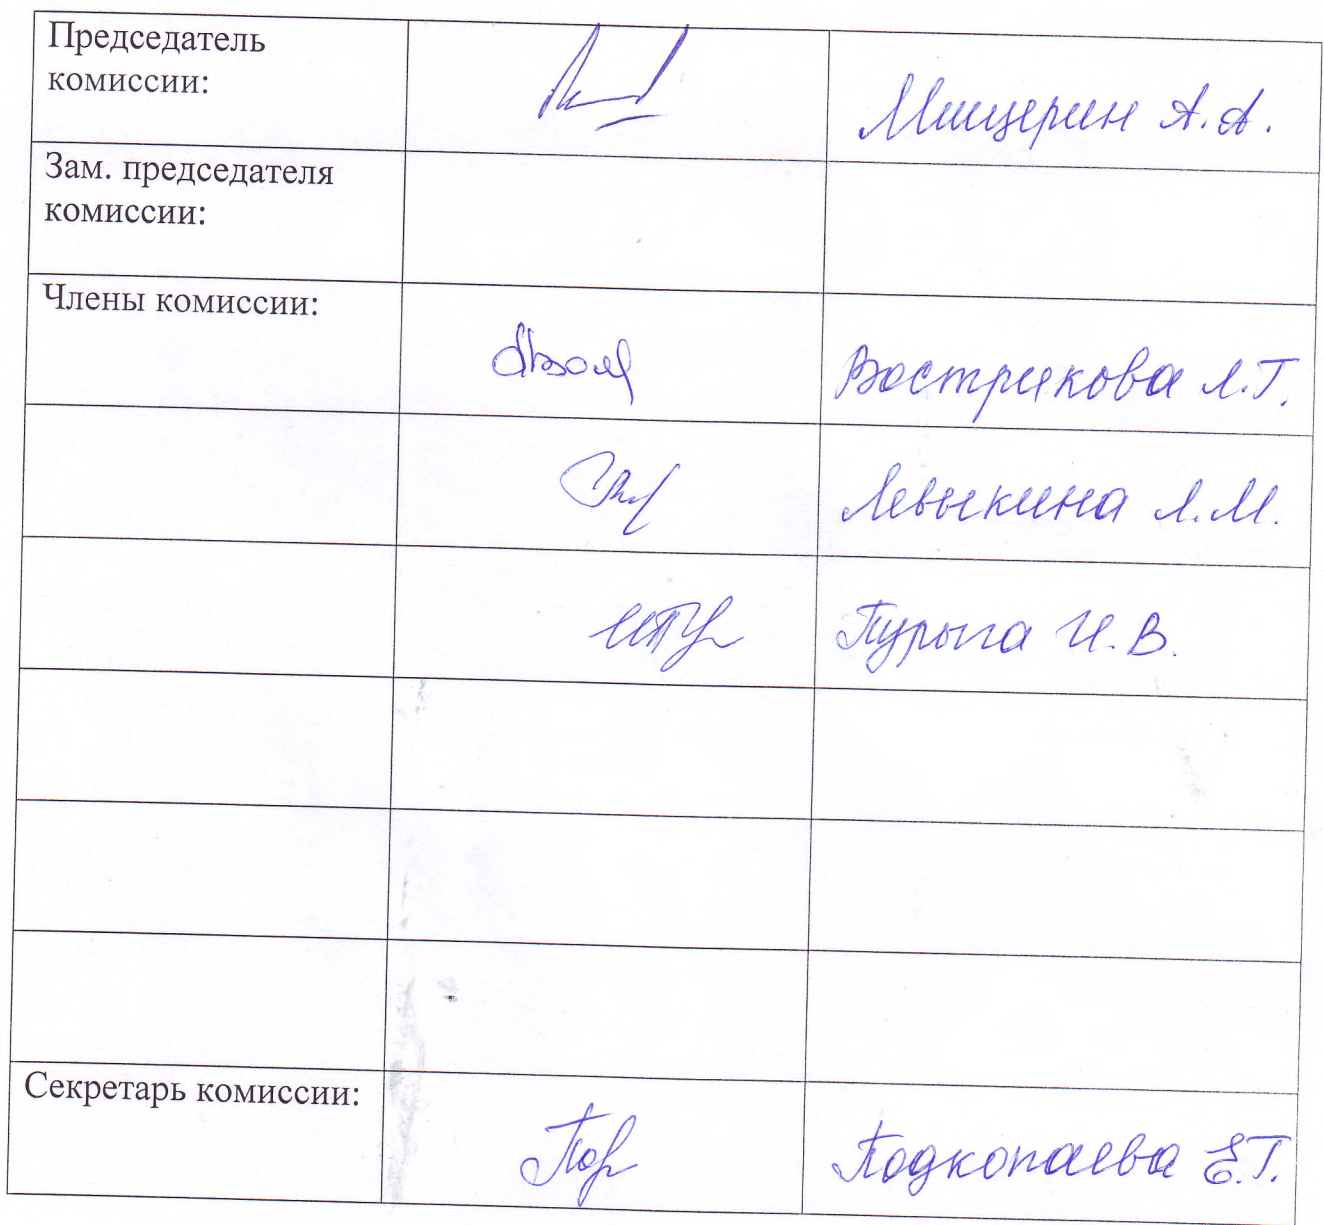 Председатель
комиссии:
Мищерин А.А.
Зам. председателя
комиссии:
Члены комиссии:
Вострикова Л.Г.
Левыкина Л.М.
Пурыга И.В.
Секретарь комиссии:
Подкопаева Е.Г.